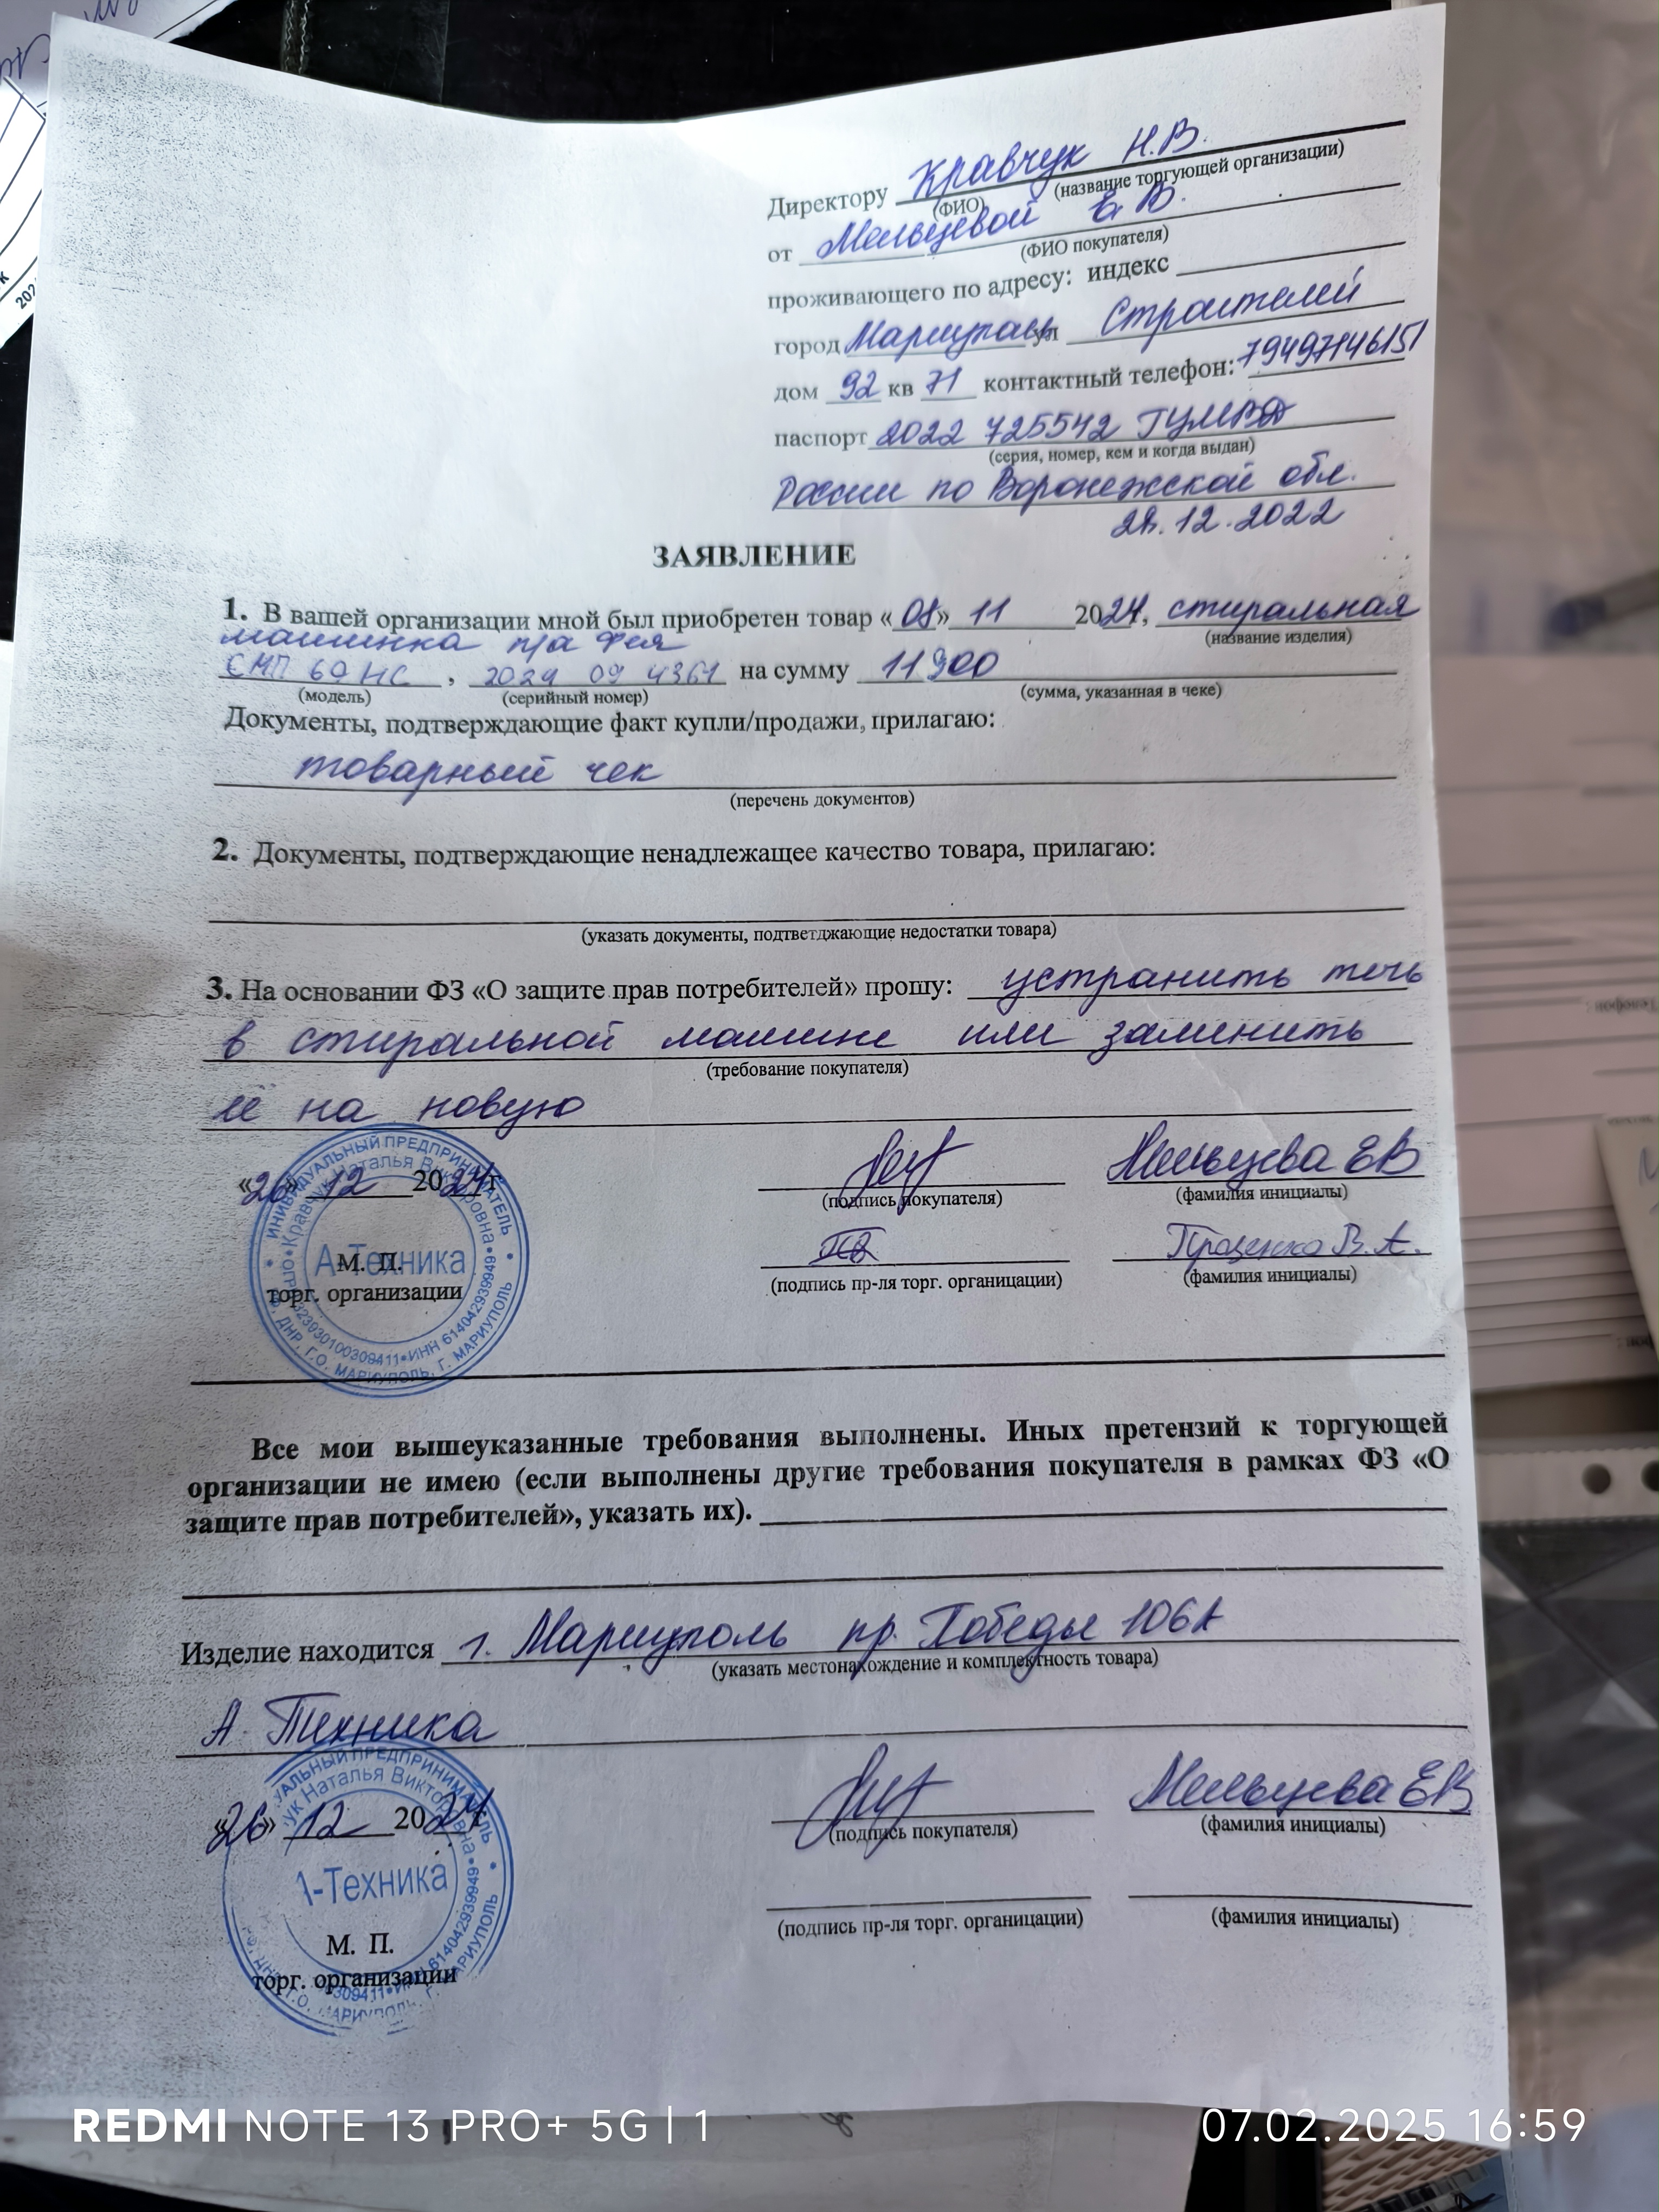 Директору Кравчук Н.В.
(ФИО) (название торгующей организации)
от Мельцевой Е.В.
(ФИО покупателя)
проживающего по адресу: индекс
город Мариуполь ул Строителей
дом 92 кв 71 контактный телефон: 79497146151
паспорт 2022 725542 ГУМВД
(серия, номер, кем и когда выдан)
России по Воронежской обл.
28.12.2022
ЗАЯВЛЕНИЕ
1. В вашей организации мной был приобретен товар «08» 11 2024, стиральная
(название изделия)
машинка п/а Фея
СМП 60 НС , 2024 09 4361 на сумму 11900
(модель) (серийный номер) (сумма, указанная в чеке)
Документы, подтверждающие факт купли/продажи, прилагаю:
товарный чек
(перечень документов)
2. Документы, подтверждающие ненадлежащее качество товара, прилагаю:
(указать документы, подтветджающие недостатки товара)
3. На основании ФЗ «О защите прав потребителей» прошу: устранить течь
в стиральной машине или заменить
(требование покупателя)
ее на новую
«26» 12 2024г Мельцева ЕВ
(подпись покупателя) (фамилия инициалы)
Проценко В.А.
(подпись пр-ля торг. органицации) (фамилия инициалы)
М. П.
торг. организации
ИНИВИДУАЛЬНЫЙ ПРЕДПРИНИМАТЕЛЬ
Кравчук Наталья Викторовна
А-Техника
323930100309411 • ИНН 614042939949
ДНР, Г.О. МАРИУПОЛЬ, Г. МАРИУПОЛЬ
Все мои вышеуказанные требования выполнены. Иных претензий к торгующей
организации не имею (если выполнены другие требования покупателя в рамках ФЗ «О
защите прав потребителей», указать их).
Изделие находится г. Мариуполь пр. Победы 106А
(указать местонахождение и комплектность товара)
А-Техника
«26» 12 2024г Мельцева ЕВ
(подпись покупателя) (фамилия инициалы)
(подпись пр-ля торг. органицации) (фамилия инициалы)
УАЛЬНЫЙ ПРЕДПРИНИМАТЕЛЬ
УК Наталья Викторовна
-Техника
М. П.
торг. организации
309411 • ИНН 614042939949
Г. МАРИУПОЛЬ
REDMI NOTE 13 PRO+ 5G | 1
07.02.2025 16:59